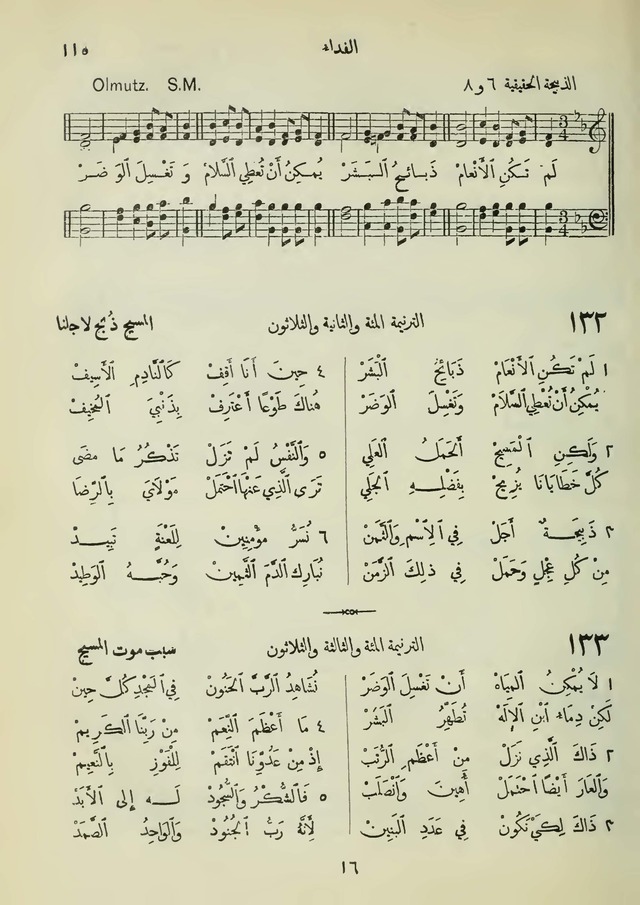 ١١٥ الفداء
Olmutz. S.M. الذبيحة الحقيقية ٦ و ٨
لَمْ تَكُنِ ٱلْأَنْعَامْ ذَبَائِحُ ٱلْبَشَرْ يُمكِنُ أَنْ تُعْطِي ٱلسَّلَامْ وَ تَغْسِلَ ٱلْوَضَرْ
١٣٢ الترنيمة المئة والثانية والثلاثون المسيح ذُبح لاجلنا
١ لَمْ تَكُنِ ٱلْأَنْعَامْ ذَبَائِحُ ٱلْبَشَرْ ٤ حِينَ أَنَا أَقِفْ كَٱلنَّادِمِ ٱلْأَسِيفْ
يُمْكِنُ أَنْ تُعْطِي ٱلسَّلَامْ وَتَغْسِلَ ٱلْوَضَرْ هُنَاكَ طَوْعًا أَعْتَرِفْ بِذَنْبِيَ ٱلْمُخِيفْ
٢ وَلَكِنِ ٱلْمَسِيحْ أَلْحَمَلُ ٱلْعَلِي ٥ وَٱلنَّفْسُ لَمْ تَزَلْ تَذْكُرُ مَا مَضَى
كُلَّ خَطَايَانَا يُزِيحْ بِفَضْلِهِ ٱلْجَلِي تَرَى ٱلَّذِي عَنْهَا ٱحْتَمَلْ مَوْلَايَ بِٱلرِّضَا
٣ ذَبِيحَةٌ أَجَلْ فِي ٱلْاِسْمِ وَٱلثَّمَنْ ٦ نُسَرُّ مُؤْمِنِينْ لِلَّعْنَةِ تَبِيدْ
مِنْ كُلِّ عِجْلٍ وَحَمَلْ فِي ذٰلِكَ ٱلزَّمَنْ نُبَارِكَ ٱلدَّمَ ٱلثَّمِينْ وَحُبَّهُ ٱلْوَطِيدْ
١٣٣ الترنيمة المئة والثالثة والثلاثون سبب موت المسيح
١ لَا يُمْكِنُ ٱلْمِيَاهْ أَنْ تَغْسِلَ ٱلْوَضَرْ نُشَاهِدُ ٱلرَّبَّ ٱلْحَنُونْ فِي ٱلْمَجْدِ كُلَّ حِينْ
لَكِنْ دِمَاءُ ٱبْنِ ٱلْإِلَهْ تُطَهِّرُ ٱلْبَشَرْ ٤ مَا أَعْظَمَ ٱلنِّعَمْ مِنْ رَبِّنَا ٱلْكَرِيمْ
٢ ذَاكَ ٱلَّذِي نَزَلْ مِنْ أَعْظَمِ ٱلرُّتَبْ إِذْ مِنْ عَدُوِّنَا ٱنْتَقَمْ لِلْفَوْزِ بِٱلنَّعِيمْ
وَٱلْعَارَ أَيْضًا ٱحْتَمَلْ أُهِينَ وَٱنْصَلَبْ ٥ فَٱلشُّكْرُ وَٱلسُّجُودْ لَهُ إِلَى ٱلْأَبَدْ
٣ ذَاكَ لِكَيْ نَكُونْ فِي عَدَدِ ٱلْبَنِينْ لِأَنَّهُ رَبُّ ٱلْجُنُودْ وَٱلْوَاحِدُ ٱلصَّمَدْ
١٦